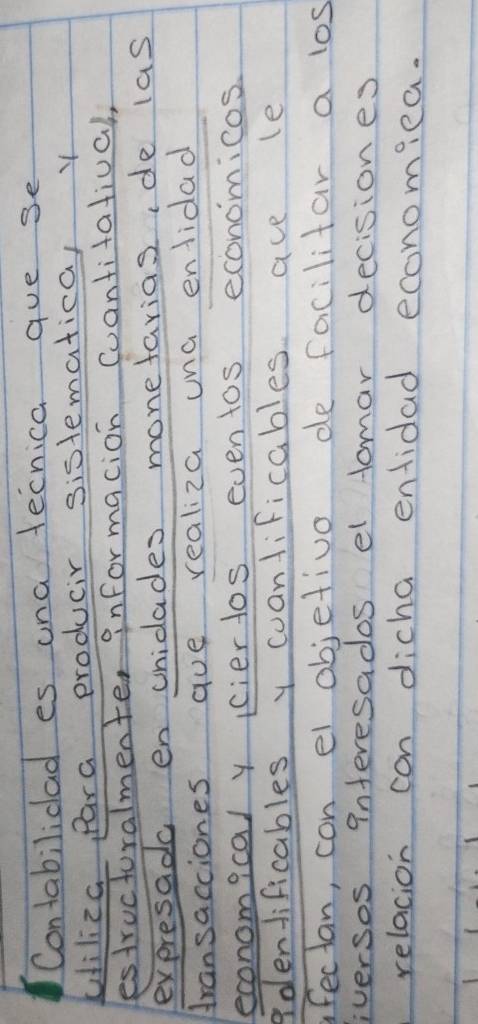 Contabilidad es una técnica que se
utiliza para producir sistematica, y
estructuralmente, información cuantitativa,
expresada en unidades monetarias, de las
transacciones que realiza una entidad
economica, y ciertos eventos económicos
identificables y cuantificables que le
afectan, con el objetivo de facilitar a los
iversos interesados el tomar decisiones
relación con dicha entidad economica.